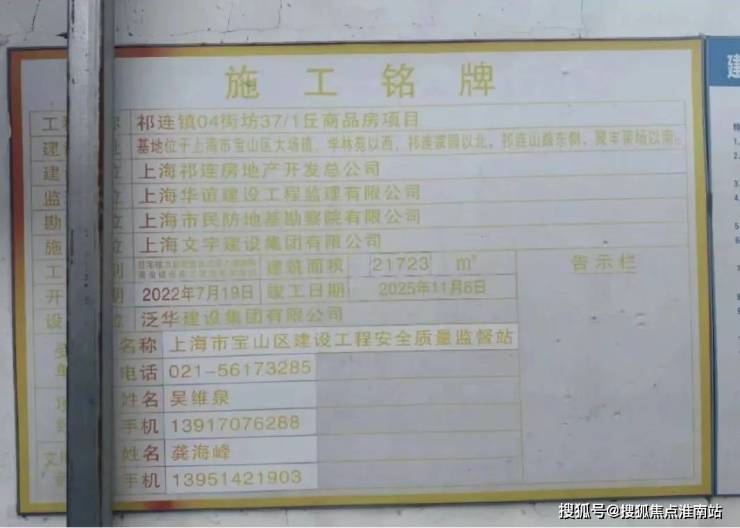 施工铭牌
工 称 祁连镇04街坊37/1丘商品房项目
建 址 基地位于上海市宝山区大场镇，学林苑以西，祁连家园以北，祁连山路东侧，聚丰菜场以南。
建 位 上海祁连房地产开发总公司
监 位 上海华谊建设工程监理有限公司
勘 位 上海市民防地基勘察院有限公司
施 位 上海文宇建设集团有限公司
工 别 建筑面积 21723 m² 告示栏
开 期 2022年7月19日 竣工日期 2025年11月8日
设 位 泛华建设集团有限公司
受 名称 上海市宝山区建设工程安全质量监督站
单 电话 021-56173285
项 姓名 吴维泉
经 手机 13917076288
文 姓名 龚海峰
手机 13951421903
建
搜狐号@搜狐焦点淮南站